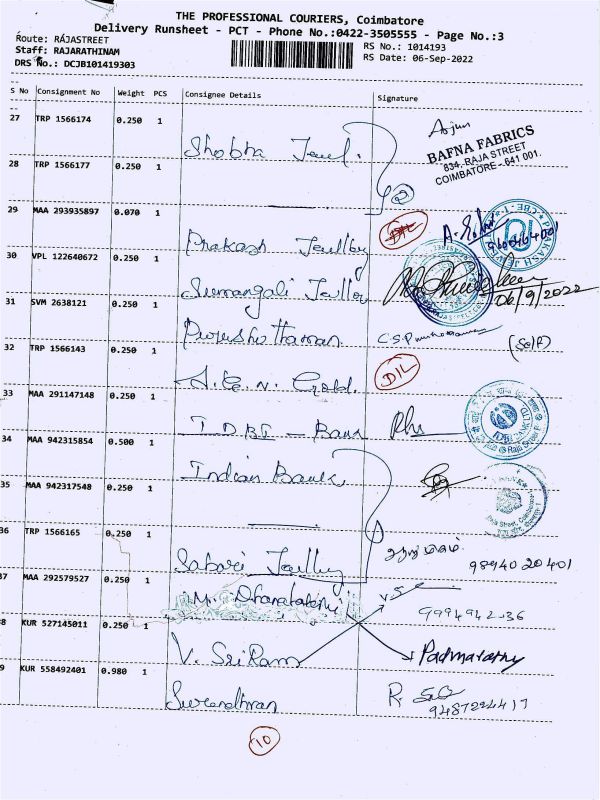 THE PROFESSIONAL COURIERS, Coimbatore
Delivery Runsheet - PCT - Phone No.:0422-3505555 - Page No.:3
Route: RAJASTREET
RS No.: 1014193
Staff: RAJARATHINAM
RS Date: 06-Sep-2022
DRS No.: DCJB101419303
S No Consignment No Weight PCS Consignee Details Signature
27 TRP 1566174 0.250 1 Shobha Jewl. Arjun
BAFNA FABRICS
834, RAJA STREET
COIMBATORE - 641 001.
28 TRP 1566177 0.250 1 2
29 MAA 293935897 0.070 1 Prakash Jewllry
30 VPL 122640672 0.250 1 Sumangali Jewllry 06/9/2022
31 SVM 2638121 0.250 1 Purushothaman (Self)
32 TRP 1566143 0.250 1 Gold. D/L
33 MAA 291147148 0.250 1 IDBI - Bank
IDBI BANK LTD
34 MAA 942315854 0.500 1 Indian Bank
35 MAA 942317548 0.250 1
36 TRP 1566165 0.250 1 Sabari Jewllry 9894020401
37 MAA 292579527 0.250 1 V.S
38 KUR 527145011 0.250 1 V. Sri Ram
39 KUR 558492401 0.980 1 Surendhran
10